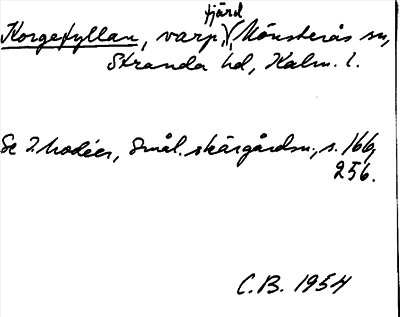 fjärd
Korgefyllan, varp, Mönsterås sn,
Stranda hd, Kalm. l.
Se I. Modéer, Smål. skärgårdsn., s. 166,
256.
C.B. 1954